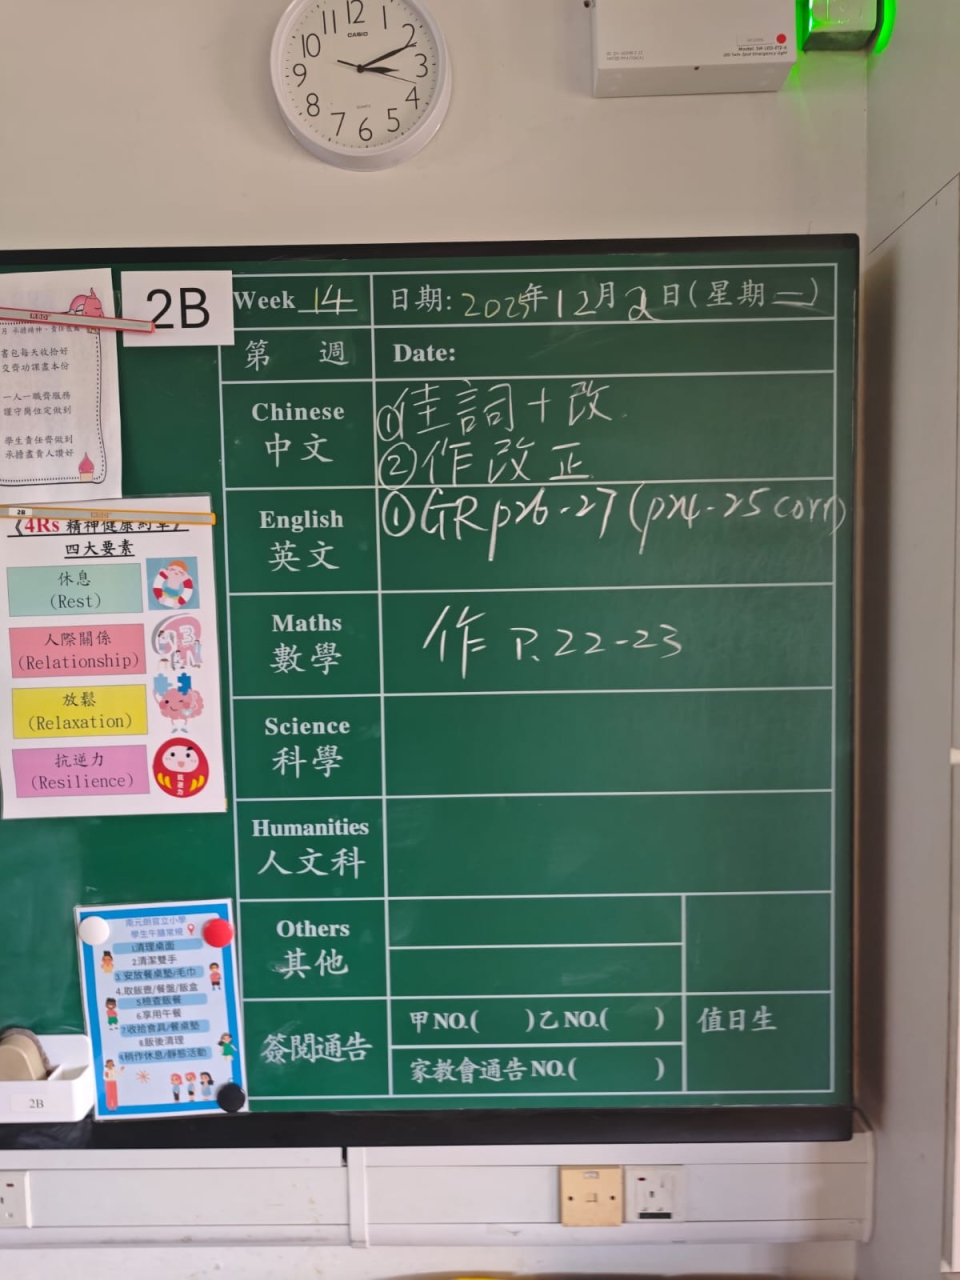 12
1
2
3
4
5
6
7
8
9
10
11
CASIO
QUARTZ
2B
書包每天收拾好
交齊功課盡本份
一人一職齊服務
謹守崗位定做到
學生責任齊做到
承擔盡責人讚好
2B
《4Rs 精神健康約章》
四大要素
休息
(Rest)
人際關係
(Relationship)
放鬆
(Relaxation)
抗逆力
(Resilience)
南元朗官立小學
學生午膳常規
1.清理桌面
2.清潔雙手
3.安放餐桌墊/毛巾
4.取飯壺/餐盤/飯盒
5.檢查飯餐
6.享用午餐
7.收拾食具/餐桌墊
8.飯後清理
9.稍作休息/靜態活動
2B
Week 14 日期: 2025年12月2日(星期二)
第 週 Date:
Chinese
中文
①佳詞+改
②作改正
English
英文
①GR p26-27 (p24-25 corr)
Maths
數學
作 P.22-23
Science
科學
Humanities
人文科
Others
其他
簽閱通告
甲NO.( )乙NO.( )
家教會通告NO.( )
值日生